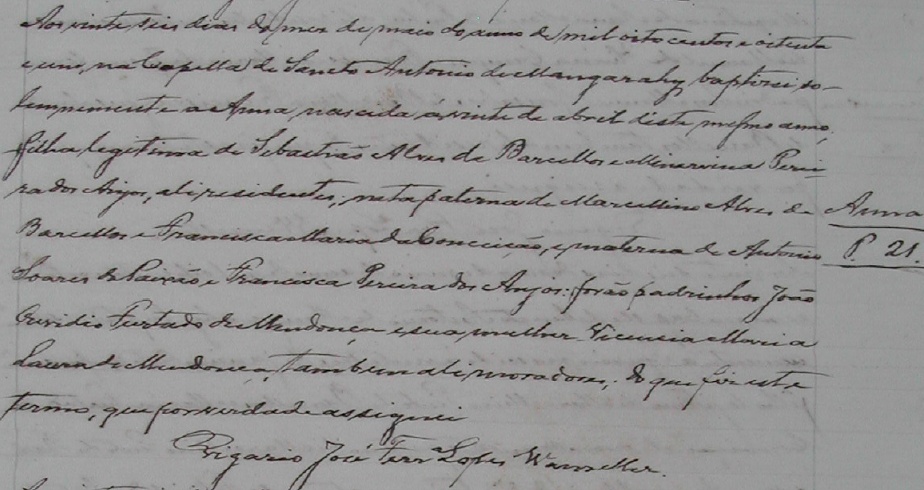 Aos vinte seis dias do mes de maio do anno de mil oito centos e oitenta
e um, na Capella de Sancto Antonio do Mangarahy, baptisei so-
lempnemente a Anna, nascida á vinte de abril deste mesmo anno,
filha legitima de Sebastião Alves de Barcellos e Minervina Perei
ra dos Anjos, ali residentes; neta paterna de Marcellino Alves de
Anna
Barcellos e Francisca Maria da Conceição, e materna de Antonio
P. 21.
Soares da Paixão e Francisca Pereira dos Anjos: forão padrinhos João
Ovidio Furtado de Mendonça e sua mulher Vicencia Maria
Laura de Mendonça, tambem ali moradores; do que fiz este
termo, que por verdade assignei
Vigario José Ferra Lopes